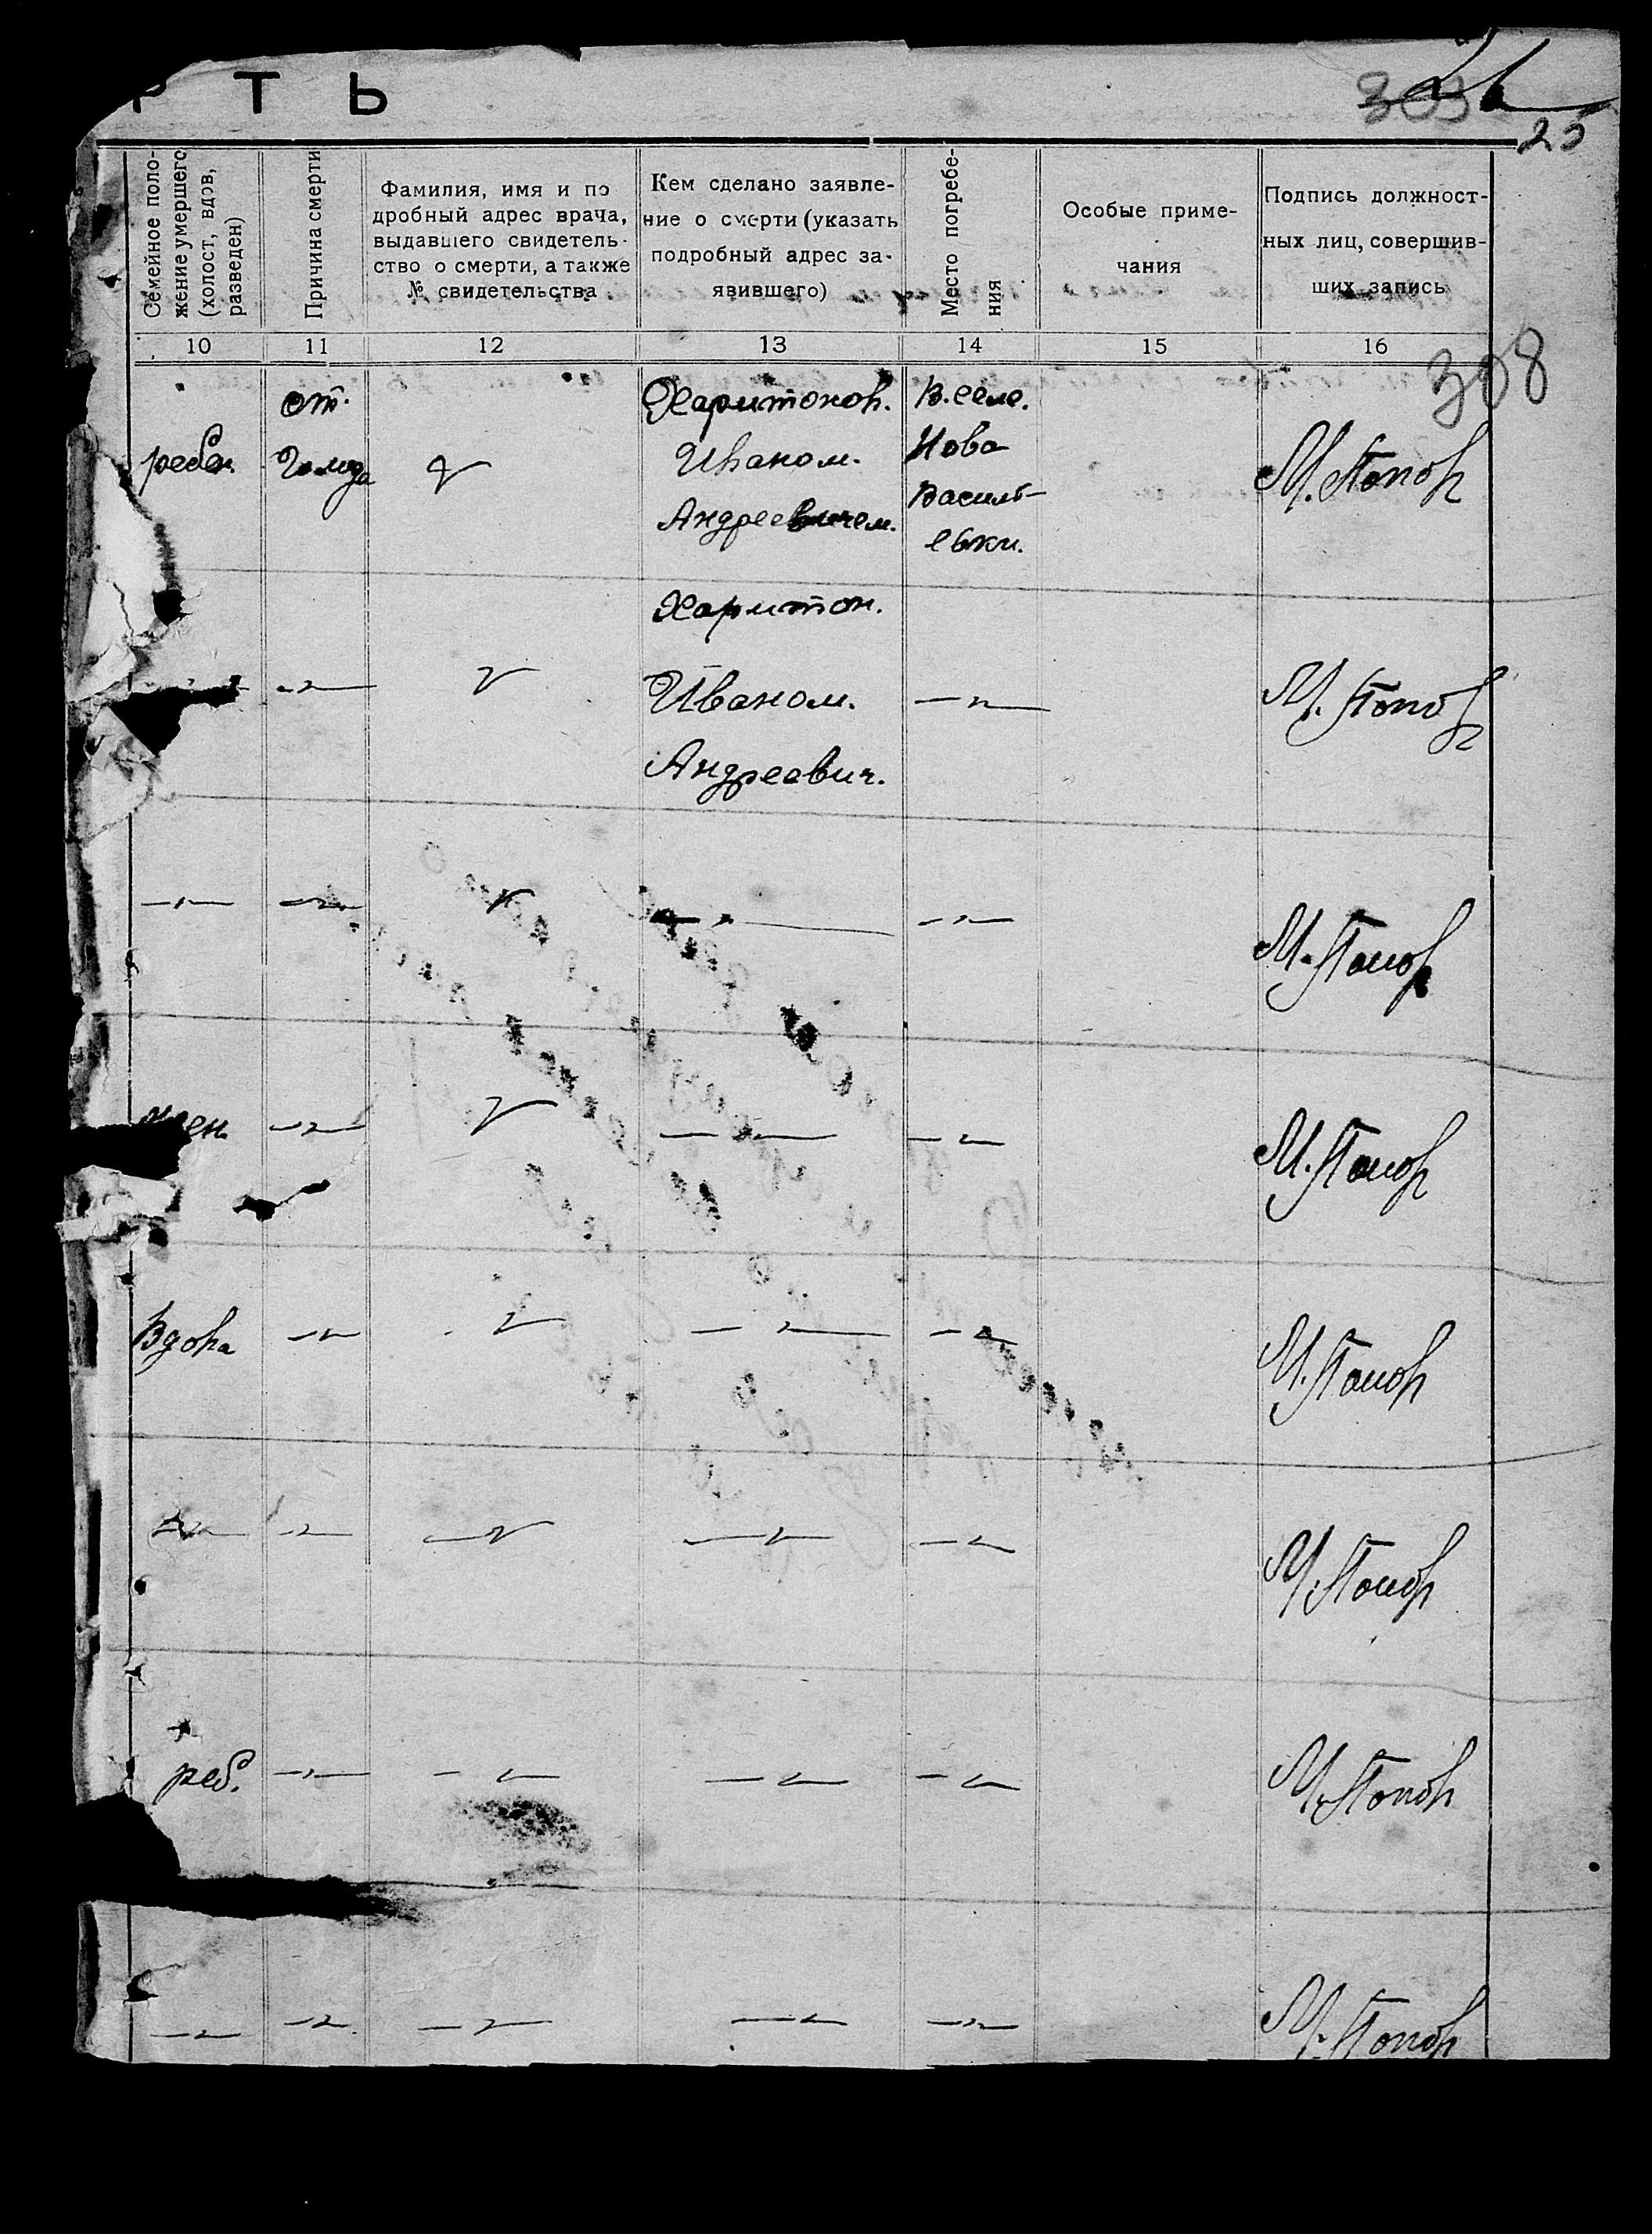 Р Т Ь
25
Семейное поло-
жение умершего
(холост, вдов,
разведен)
Причина смерти
Фамилия, имя и по
дробный адрес врача,
выдавшего свидетель-
ство о смерти, а также
№ свидетельства
Кем сделано заявле-
ние о смерти (указать
подробный адрес за-
явившего)
Место погребе-
ния
Особые приме-
чания
Подпись должност-
ных лиц, совершив-
ших запись
10 11 12 13 14 15 16
308
ребен.
от.
Голода
Харитонов.
Иваном.
Андреевичем.
В. селе.
Ново
Василь-
евки.
М. Попов
Харитон.
Иваном.
Андреевич.
— " —
— " —
М. Попов
— " —
— " —
— " —
— " —
М. Попов
— " —
— " —
— " —
М. Попов
Вдова
— " —
— " —
— " —
М. Попов
— " —
— " —
— " —
— " —
— " —
М. Попов
реб.
— " —
— " —
— " —
— " —
М. Попов
— " —
— " —
— " —
— " —
— " —
М. Попов